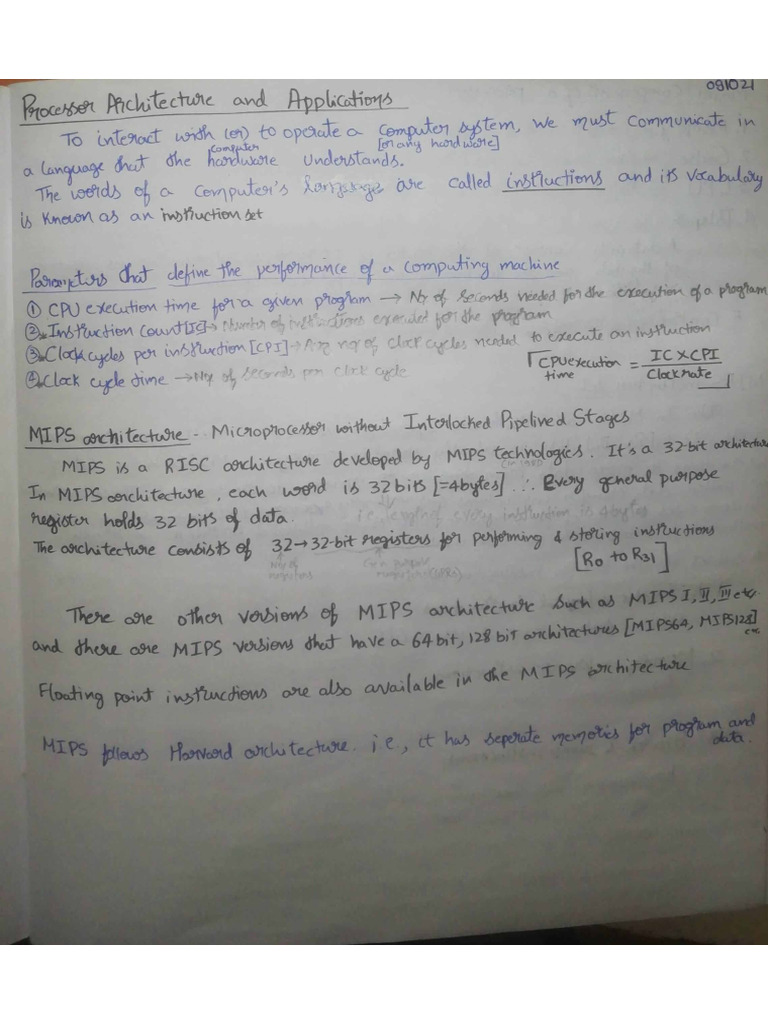 091021
Processor Architecture and Applications
To interact with (or) to operate a computer system, we must communicate in
computer [or any hardware]
a language that the hardware understands.
The words of a computer's language are called instructions and its vocabulary
is known as an instruction set
Parameters that define the performance of a computing machine
① CPU execution time for a given program → Nr of seconds needed for the execution of a program
② Instruction count [IC] → Number of instructions executed for the program
③ Clock cycles per instruction [CPI] → Avg nr of clock cycles needed to execute an instruction
④ Clock cycle time → Nr of seconds per clock cycle
CPU execution time = IC X CPI / Clock rate
MIPS architecture - Microprocessor without Interlocked Pipelined Stages
MIPS is a RISC architecture developed by MIPS technologies. It's a 32-bit architecture
In MIPS architecture, each word is 32 bits [=4bytes] ∴ Every general purpose
register holds 32 bits of data. i.e. length of every instruction is 4 bytes
The architecture consists of 32 → 32-bit registers for performing & storing instructions
Nr of registers
[R0 to R31]
There are other versions of MIPS architecture such as MIPS I, II, III etc.
and there are MIPS versions that have a 64 bit, 128 bit architectures [MIPS64, MIPS128] etc
Floating point instructions are also available in the MIPS architecture
MIPS follows Harvard architecture. i.e., it has seperate memories for program and
data.